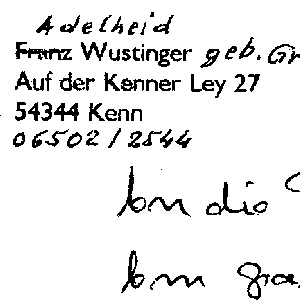 Adelheid
Franz Wustinger geb. Gr
Auf der Kenner Ley 27
54344 Kenn
06502/2544
An die